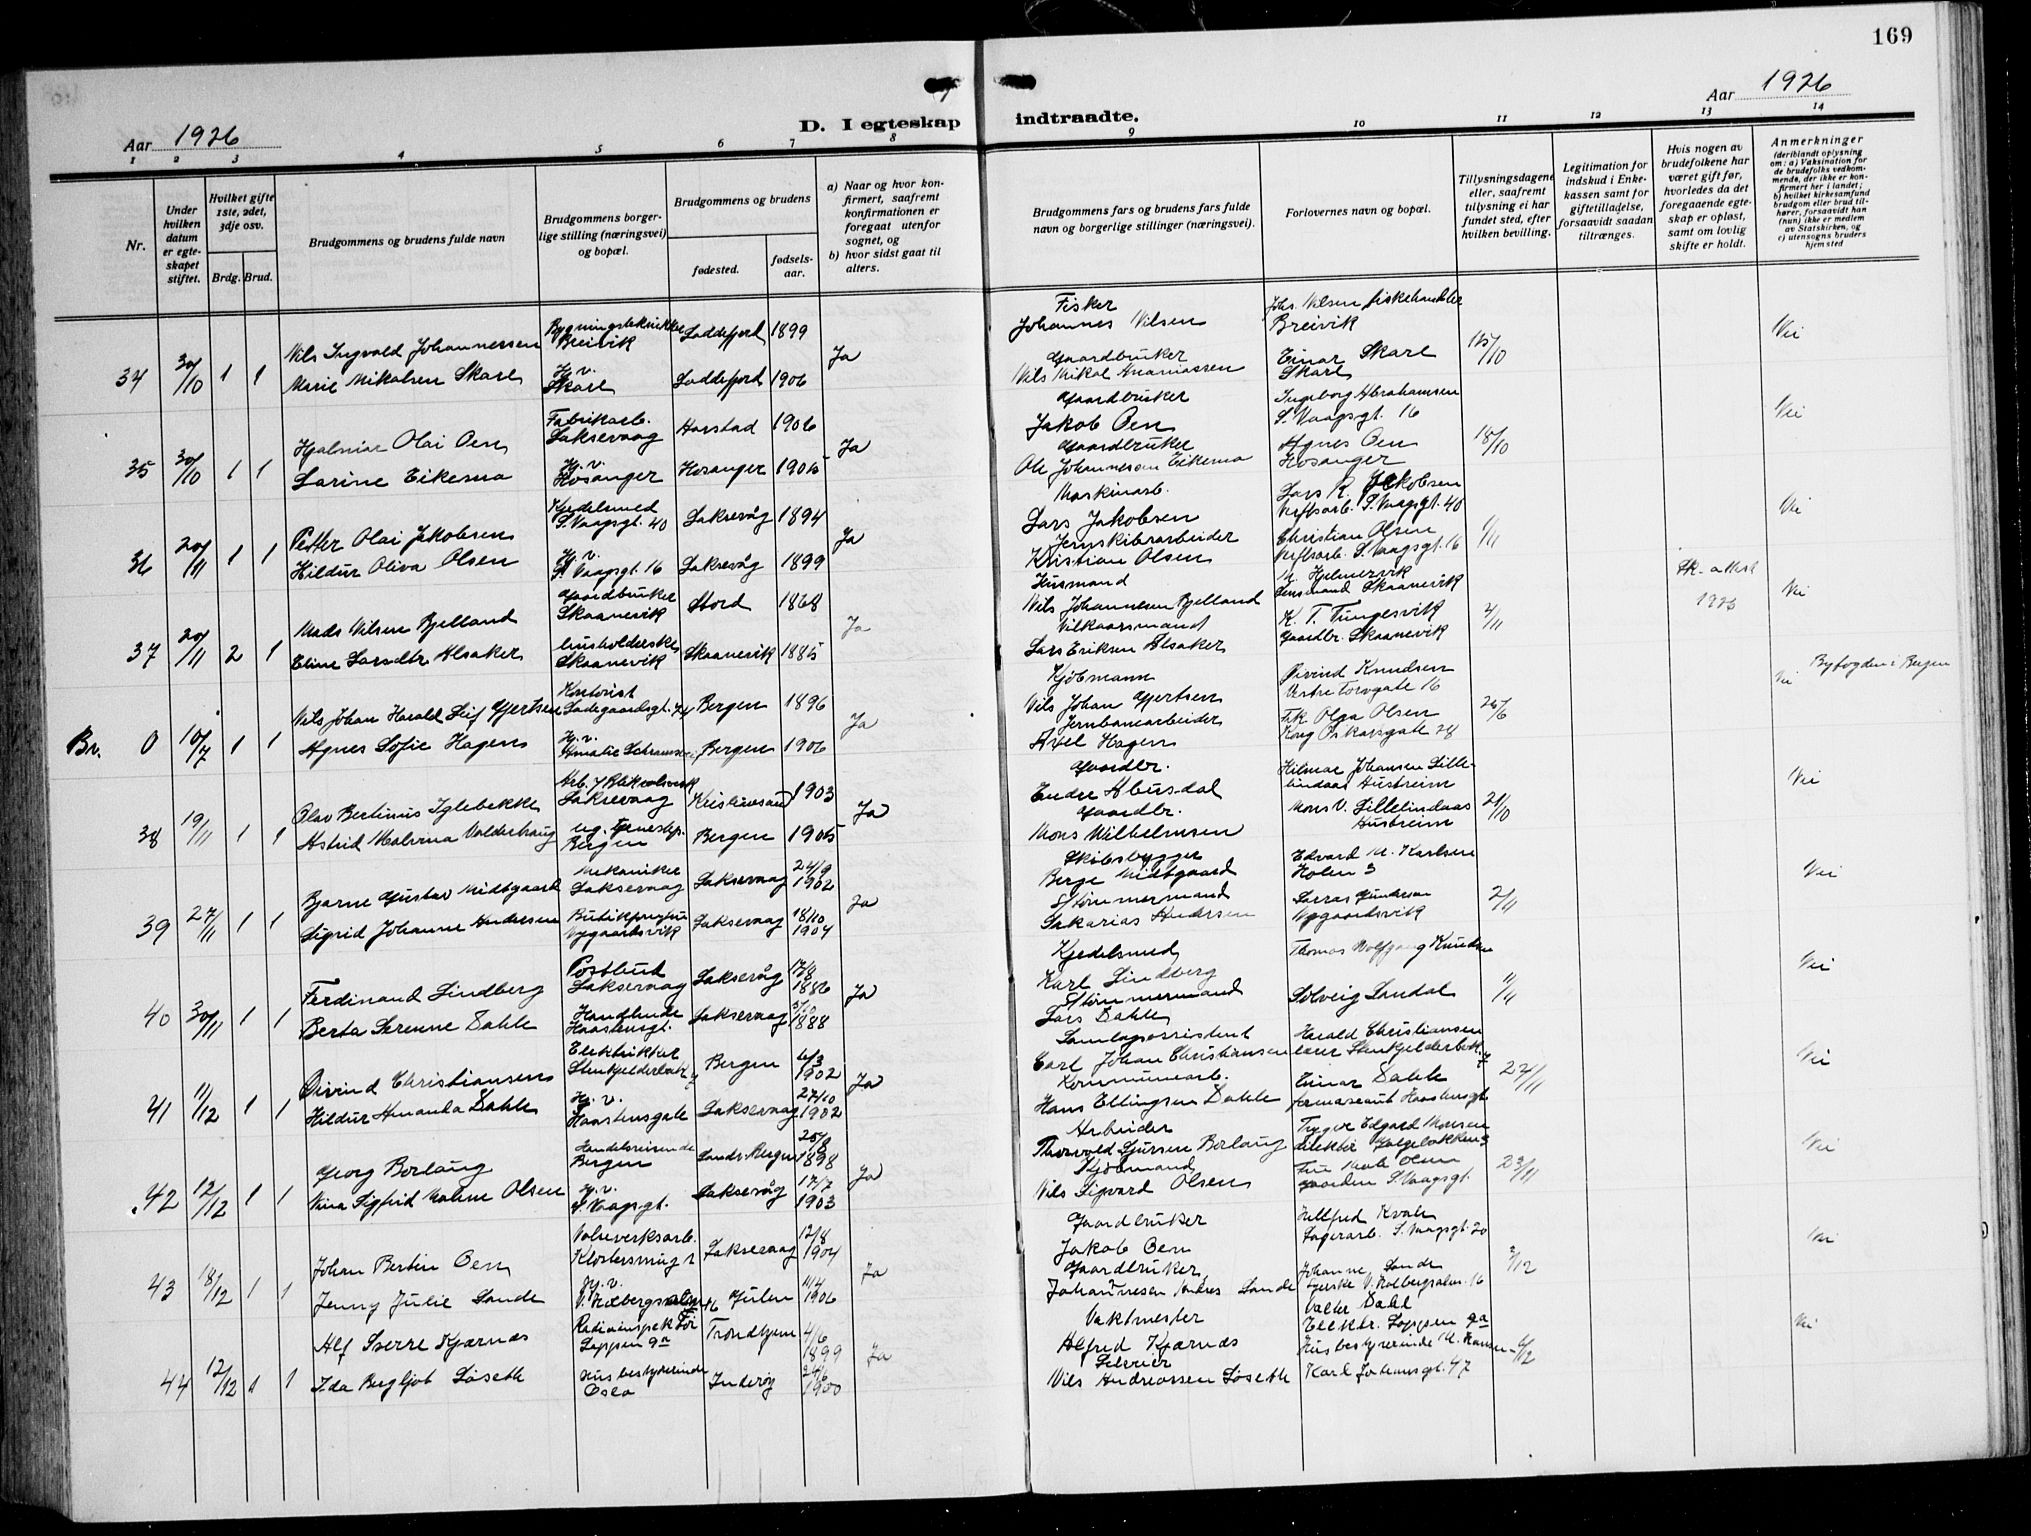 169
Aar 1926
D. I egteskap indtraadte.
Aar 1926
1 2 3 4 5 6 7 8 9 10 11 12 13 14
Nr.
Under hvilken datum er egteskapet stiftet.
Hvilket gifte 1ste, 2det, 3dje osv.
Brdg. Brud.
Brudgommens og brudens fulde navn
Brudgommens borgerlige stilling (næringsvei) og bopæl.
Brudgommens og brudens
fødested.
fødselsaar.
a) Naar og hvor konfirmert, saafremt konfirmationen er foregaat utenfor sognet, og
b) hvor sidst gaat til alters.
Brudgommens fars og brudens fars fulde navn og borgerlige stillinger (næringsvei).
Forlovernes navn og bopæl.
Tillysningsdagene eller, saafremt tillysning ei har fundet sted, efter hvilken bevilling.
Legitimation for indskud i Enkekassen samt for giftetilladelse, forsaavidt saadan tiltrænges.
Hvis nogen av brudefolkene har været gift før, hvorledes da det foregaaende egteskap er opløst, samt om lovlig skifte er holdt.
Anmerkninger
(deriblandt oplysning om: a) Vaksination for de brudefolks vedkommende, der ikke er konfirmert her i landet; b) hvilket kirkesamfund brudgom eller brud tilhører, forsaavidt han (hun) ikke er medlem av Statskirken, og c) utensogns bruders hjemsted
34 30/10 1 1
Nils Ingvald Johannessen Bygningstekniker Breivik Loddefjord 1899 Ja Fisker Johannes Nilsen Johs. Nilsen fiskehandler Breivik 15/10 Nei
Marie Mikalsen Skarl Hj. v. Skarl Loddefjord 1906 Gaardbruker Nils Mikal Ananiassen Einar Skarl Skarl
35 30/10 1 1
Hjalmar Olai Oen Fabrikarb. Laksevaag Harstad 1906 Ja Gaardbruker Jakob Oen Ingeborg Abrahamsen S. Vaagsgt. 16 18/10 Nei
Larine Eikemo Hj. v. Hosanger Hosanger 1905 Gaardbruker Ole Johannesen Eikemo Agnes Oen Hosanger
36 20/11 1 1
Petter Olai Jakobsen Kjedelsmed S. Vaagsgt. 40 Laksevåg 1894 Ja Maskinarb. Lars Jakobsen Lars R. Jakobsen verftsarb. S. Vaagsgt. 40 1/11 Nei
Hildur Oliva Olsen Hj. v. S. Vaagsgt. 16 Laksevåg 1899 Jernskibsarbeider Kristian Olsen Christian Olsen verftsarb. S. Vaagsgt. 16
37 20/11 2 1
Mads Nilsen Bjelland Gaardbruker Skaanevik Stord 1868 Ja Husmand Nils Johannesen Bjelland M. Hjelmervik lensmand Skaanevik 2/11 Sk. attest 1926 Nei
Eline Larsdtr Alsaker husholderske Skaanevik Skaanevik 1885 Vilkaarsmand Lars Eriksen Alsaker K. T. Tungesvik gaardbr. Skaanevik
Br. 0 10/7 1 1
Nils Johan Harald Leif Gjertsen Kontorist Ladegaardsgt. Bergen 1896 Ja Kjøbmann Nils Johan Gjertsen Øivind Knudsen Vestre Torvgate 16 25/6 Nei Byfogden i Bergen
Agnes Sofie Hagen Hj. v. Bergen 1906 Jernbanearbeider Axel Hagen Frk. Olga Olsen Kong Oskarsgate 28
38 19/11 1 1
Olav Bertinus Iglebekke Laksevaag Kristiansand 1903 Ja Gaardbr. Endre Abusdal Hilmar Johansen Lillelindaas Austreim 21/10 Nei
Astrid Malvina Valderhaug ug. tjenestep. Bergen Bergen 1905 Gaardbr. Mons Wilhelmsen Mons V. Lillelindaas Austreim
39 27/11 1 1
Bjarne Gustav Midtgaard Mekaniker Laksevaag Laksevaag 24/9 1902 Ja Skibsbygger Berge Midtgaard Edvard M. Karlsen Holen 3 2/11 Nei
Sigrid Johanne Andersen Nygaardsvik Laksevaag 18/10 1904 Tømmermand Sakarias Andersen Nygaardsvik
40 30/11 1 1
Ferdinand Lindberg Postbud Laksevaag Laksevåg 17/8 1886 Ja Kjedelsmed Karl Lindberg Thomas Wolfgang Knudsen 1/11 Nei
Berta Serine Dahle Handlende Haastensgt. Laksevaag 1888 Tømmermand Lars Dahle Solveig Sandal
41 11/12 1 1
Øivind Christiansen Elektriker Stenkjelderbak. 7 Bergen 6/3 1902 Ja Carl Johan Christiansen Harald Christiansen Stenkjelderbak. 7 22/11 Nei
Hildur Amanda Dahle Hj. v. Haastensgate Laksevaag 27/10 1902 Kommunearb. Hans Ellingsen Dahle Einar Dahle Haastensgt.
42 12/12 1 1
Georg Borlaug Handelsreisende Bergen 1898 Ja Arbeider Thorvald Sjursen Borlaug Trygve Edgard Monsen 23/11 Nei
Nina Sigfrid Malene Olsen Hj. v. S. Vaagsgt. Laksevåg 17/7 1903 Kjøbmand Nils Sigvard Olsen S. Vaagsgt.
43 18/12 1 1
Johan Bertin Oen Valseverksarb. Laksevaag 12/8 1904 Ja Gaardbruker Jakob Oen Kvale Lagerarb. S. Vaagsgt. 20 3/12 Nei
Jenny Julie Sande Hj. v. Gulen 11/4 1906 Gaardbruker Johannesen Andres Sande Johanne Sande
44 12/12 1 1
Alf Sverre Kjærnæs Loppen 9a Trondhjem 4/6 1899 Ja Vaktmester Alfred Kjærnæs Valter Dahl Elektr. Loppen 9a 6/12 Nei
Ida Bergljot Løseth Husbestyrerinde Oslo Inderøy 24/6 1900 Nils Andreassen Løseth Husbestyrerinde M. Hansen Karl Johansgt. 47